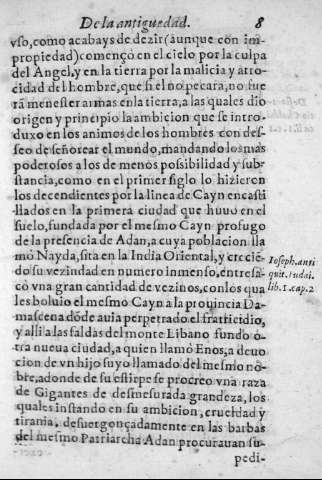 De la antiguedad. 8
vso, como acabays de dezir (aunque con im-
propiedad) començò en el cielo por la culpa
del Angel, y en la tierra por la malicia y atro-
cidad del hombre, que si el no pecara, no fue
rã menester armas en la tierra, a las quales dio
origen y principio la ambicion que se intro-
duxo en los animos de los hombres con des-
seo de señorear el mundo, mandando los mas
poderosos a los de menos possibilidad y sub-
stancia, como en el primer siglo lo hizieron
los decendientes por la linea de Cayn encasti
llados en la primera ciudad que huuo en el
suelo, fundada por el mesmo Cayn profugo
de la presencia de Adan, a cuya poblacion lla
mò Nayda, sita en la India Oriental, y crecié
do su vezindad en numero inmenso, entresa-
cò vna gran cantidad de vezinos, con los qua
les boluio el mesmo Cayn a la prouincia Da-
mascena dõde auia perpetrado el fratricidio,
y alli a las faldas del monte Libano fundò o-
tra nueua ciudad, a quien llamò Enos, a deuo
cion de vn hijo suyo llamado del mesmo nõ-
bre, adonde de su estirpe se procreo vna raza
de Gigantes de desmesurada grandeza, los
quales instando en su ambicion, crueldad y
tirania, desuergonçadamente en las barbas
del mesmo Patriarcha Adan procurauan su-
pedi-
Ioseph. anti
quit. Iudai.
lib. 1. cap. 2